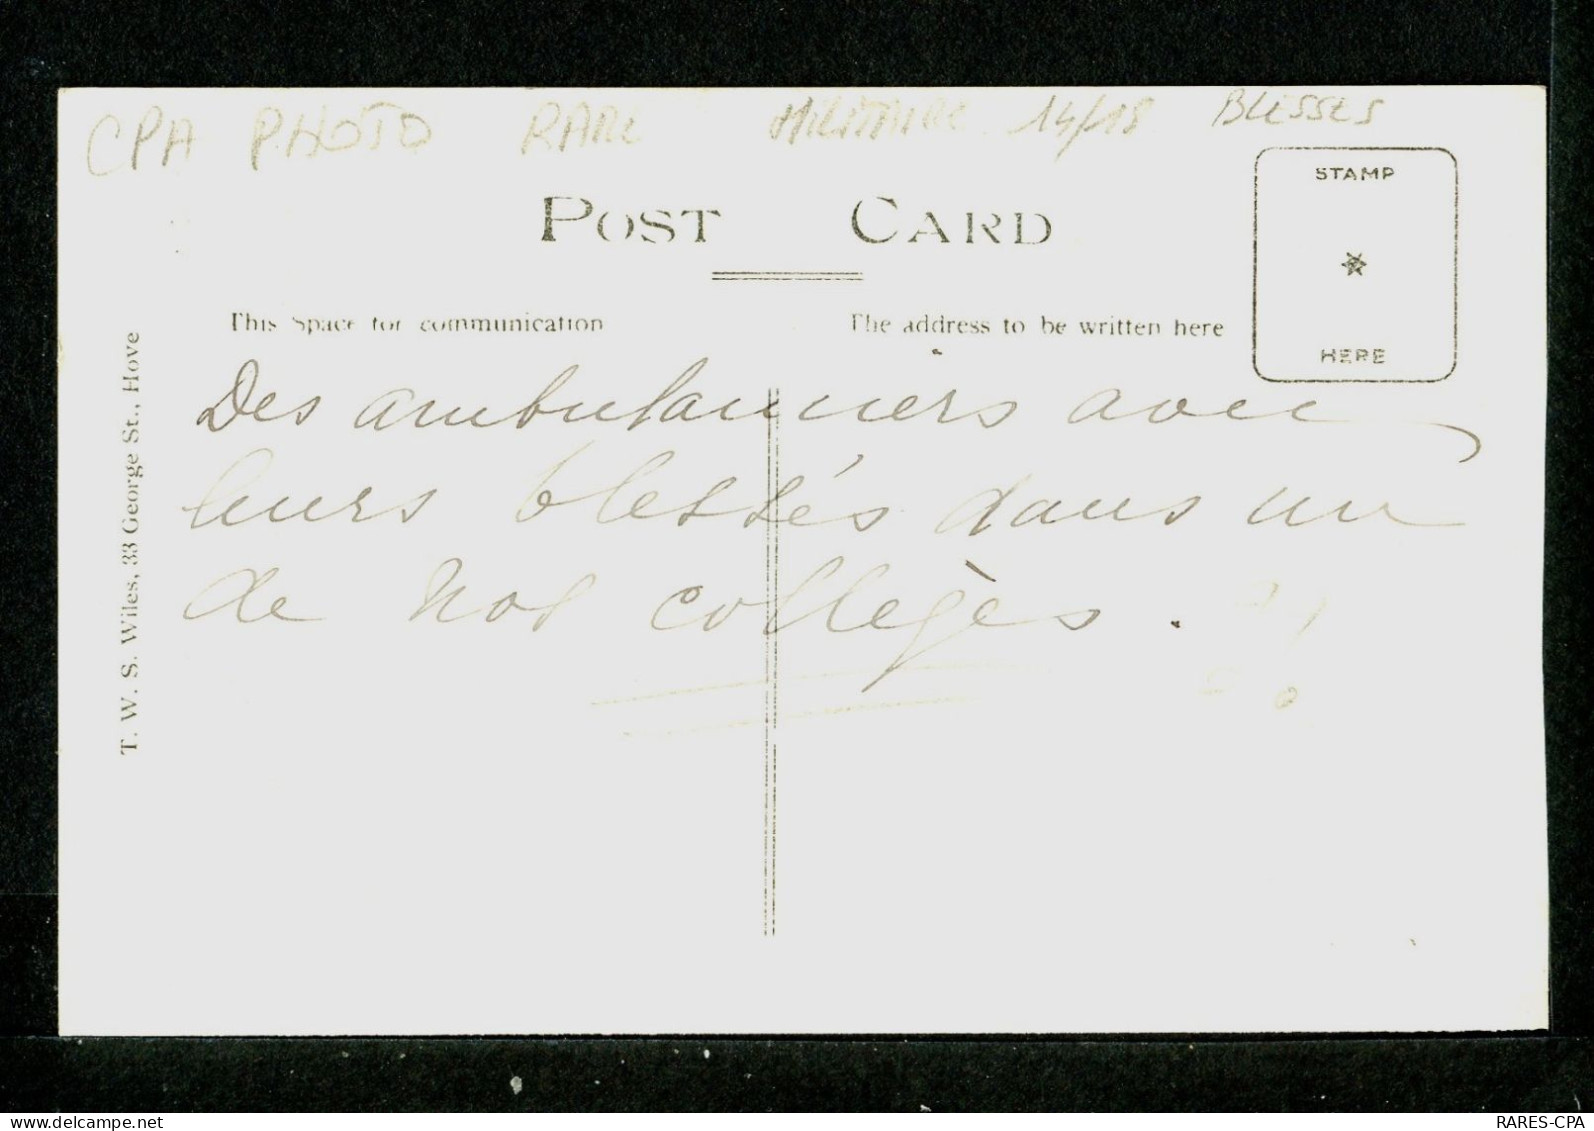 CPA PHOTO RARE MILITAIRE 14/18 BLESSES
POST CARD
STAMP
HERE
This Space for communication
The address to be written here
T. W. S. Wiles, 33 George St., Hove
Des ambulanciers avec
leurs blessés dans un
de nos collèges.
delcampe.net
RARES-CPA